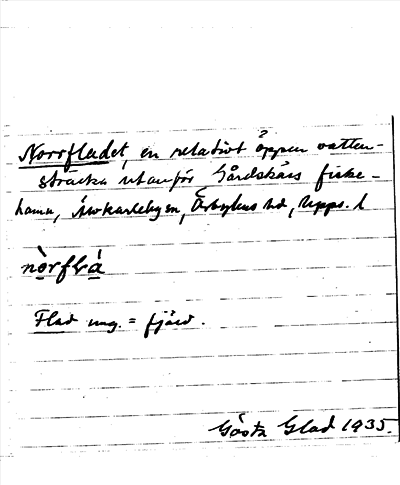 Norrfladet, en relativt öppen vatten-
sträcka utanför Gårdskärs fiske-
hamn, Älvkarlebysn, Örbyhus hd, Upps. l
nòrflá
Flad ung. = fjärd.
Gösta Glad 1935.